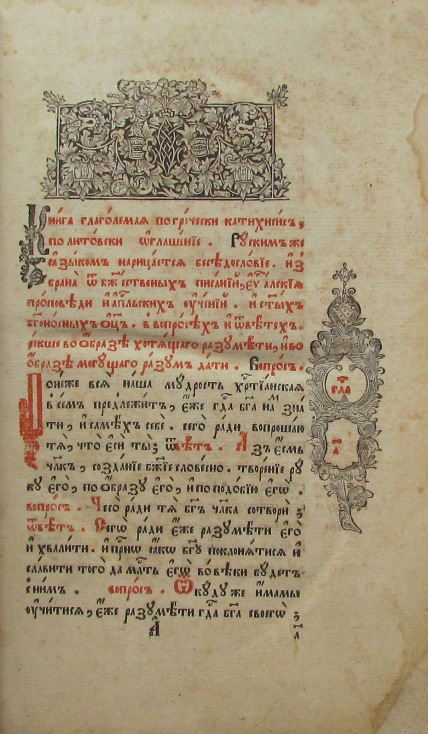 Кни́га глаголемая погречески катихисисъ,
политовски ѡ҆глашенїе . Рускимъже
ꙗ҆зыкомъ нарицается бесѣдословїе . и҆з
брана̀ ѿ бж҃ественыхъ писанїи, еу҆ⷢ҇алскїѧ
проповѣди и҆ а҆пⷭ҇льскихъ оу҆ченїи . и҆ ст҃ыхъ
бг҃оно́сныхъ ѻ҆ц҃ъ . в вопро́сѣхъ и҆ ѿвѣтехъ .
рекше во ѻ҆́бразѣ хотѧщаго разꙋмѣти, и҆ во
ѻ҆́бразѣ могꙋщаго ра́зꙋмъ дати . Вопро́съ .
Понеже всѧ наша мꙋдрость хрⷭ҇тїанская
в семъ предлежитъ , є҆́же гдⷭ҇а бг҃а на́мъ зна
ти , и҆ самѣхъ себе . сего ради вопрошаю
тѧ , что є҆сѝ ты ; ѿвѣтъ . А҆зъ є҆́смь
чл҃къ , созданїе бж҃їе словесно . творенїе рꙋ
кꙋ є҆гѡ̀ , по ѻ҆́бразꙋ є҆гѡ̀ , и҆ по подобїю є҆гѡ̀ .
вопро́съ . Чесѡ̀ ради тѧ̀ бг҃ъ чл҃ка сотвори ;
ѿвѣтъ . Сегѡ̀ ради є҆́же разꙋмѣти є҆го̀
и҆ хвалити . и҆ прⷭ҇нѡ ꙗ҆́кѡ бг҃ꙋ поклонѧтисѧ и҆
славити того̀ да мл҃ть є҆гѡ̀ во вѣки бꙋдетъ
с ни́мъ . вопро́съ . Ѿкꙋдꙋ же и҆́мамы
оу҆читисѧ , є҆́же разꙋмѣти гдⷭ҇а бг҃а своегѡ̀ ;
А
гл҃а
а҃